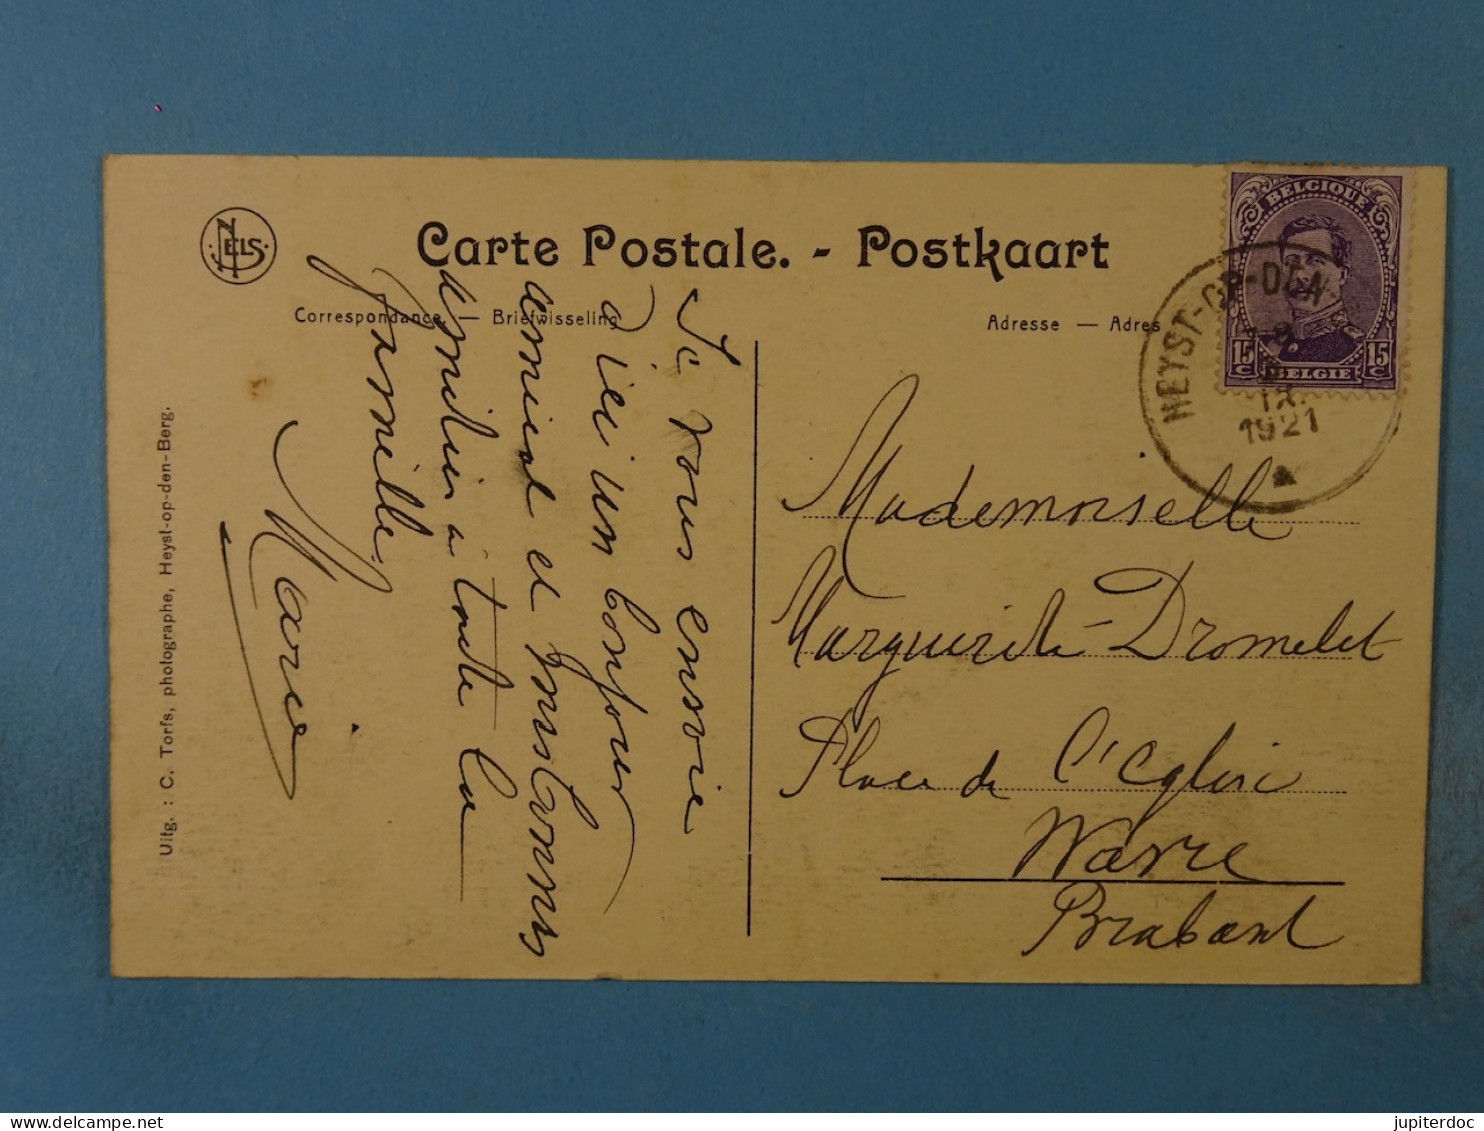 NELS
Carte Postale. - Postkaart
Correspondance — Briefwisseling
Adresse — Adres
BELGIQUE
15 C 15 C
BELGIE
HEYST-OP-DEN
1921
Je vous envoie
d'ici un bonjour
amical et
à toute la
famille.
Marie
Mademoiselle
Marguerite Dromelet
Place de l'Eglise
Wavre
Brabant
Uitg. : C. Torfs, photographe, Heyst-op-den-Berg.
jupiterdoc